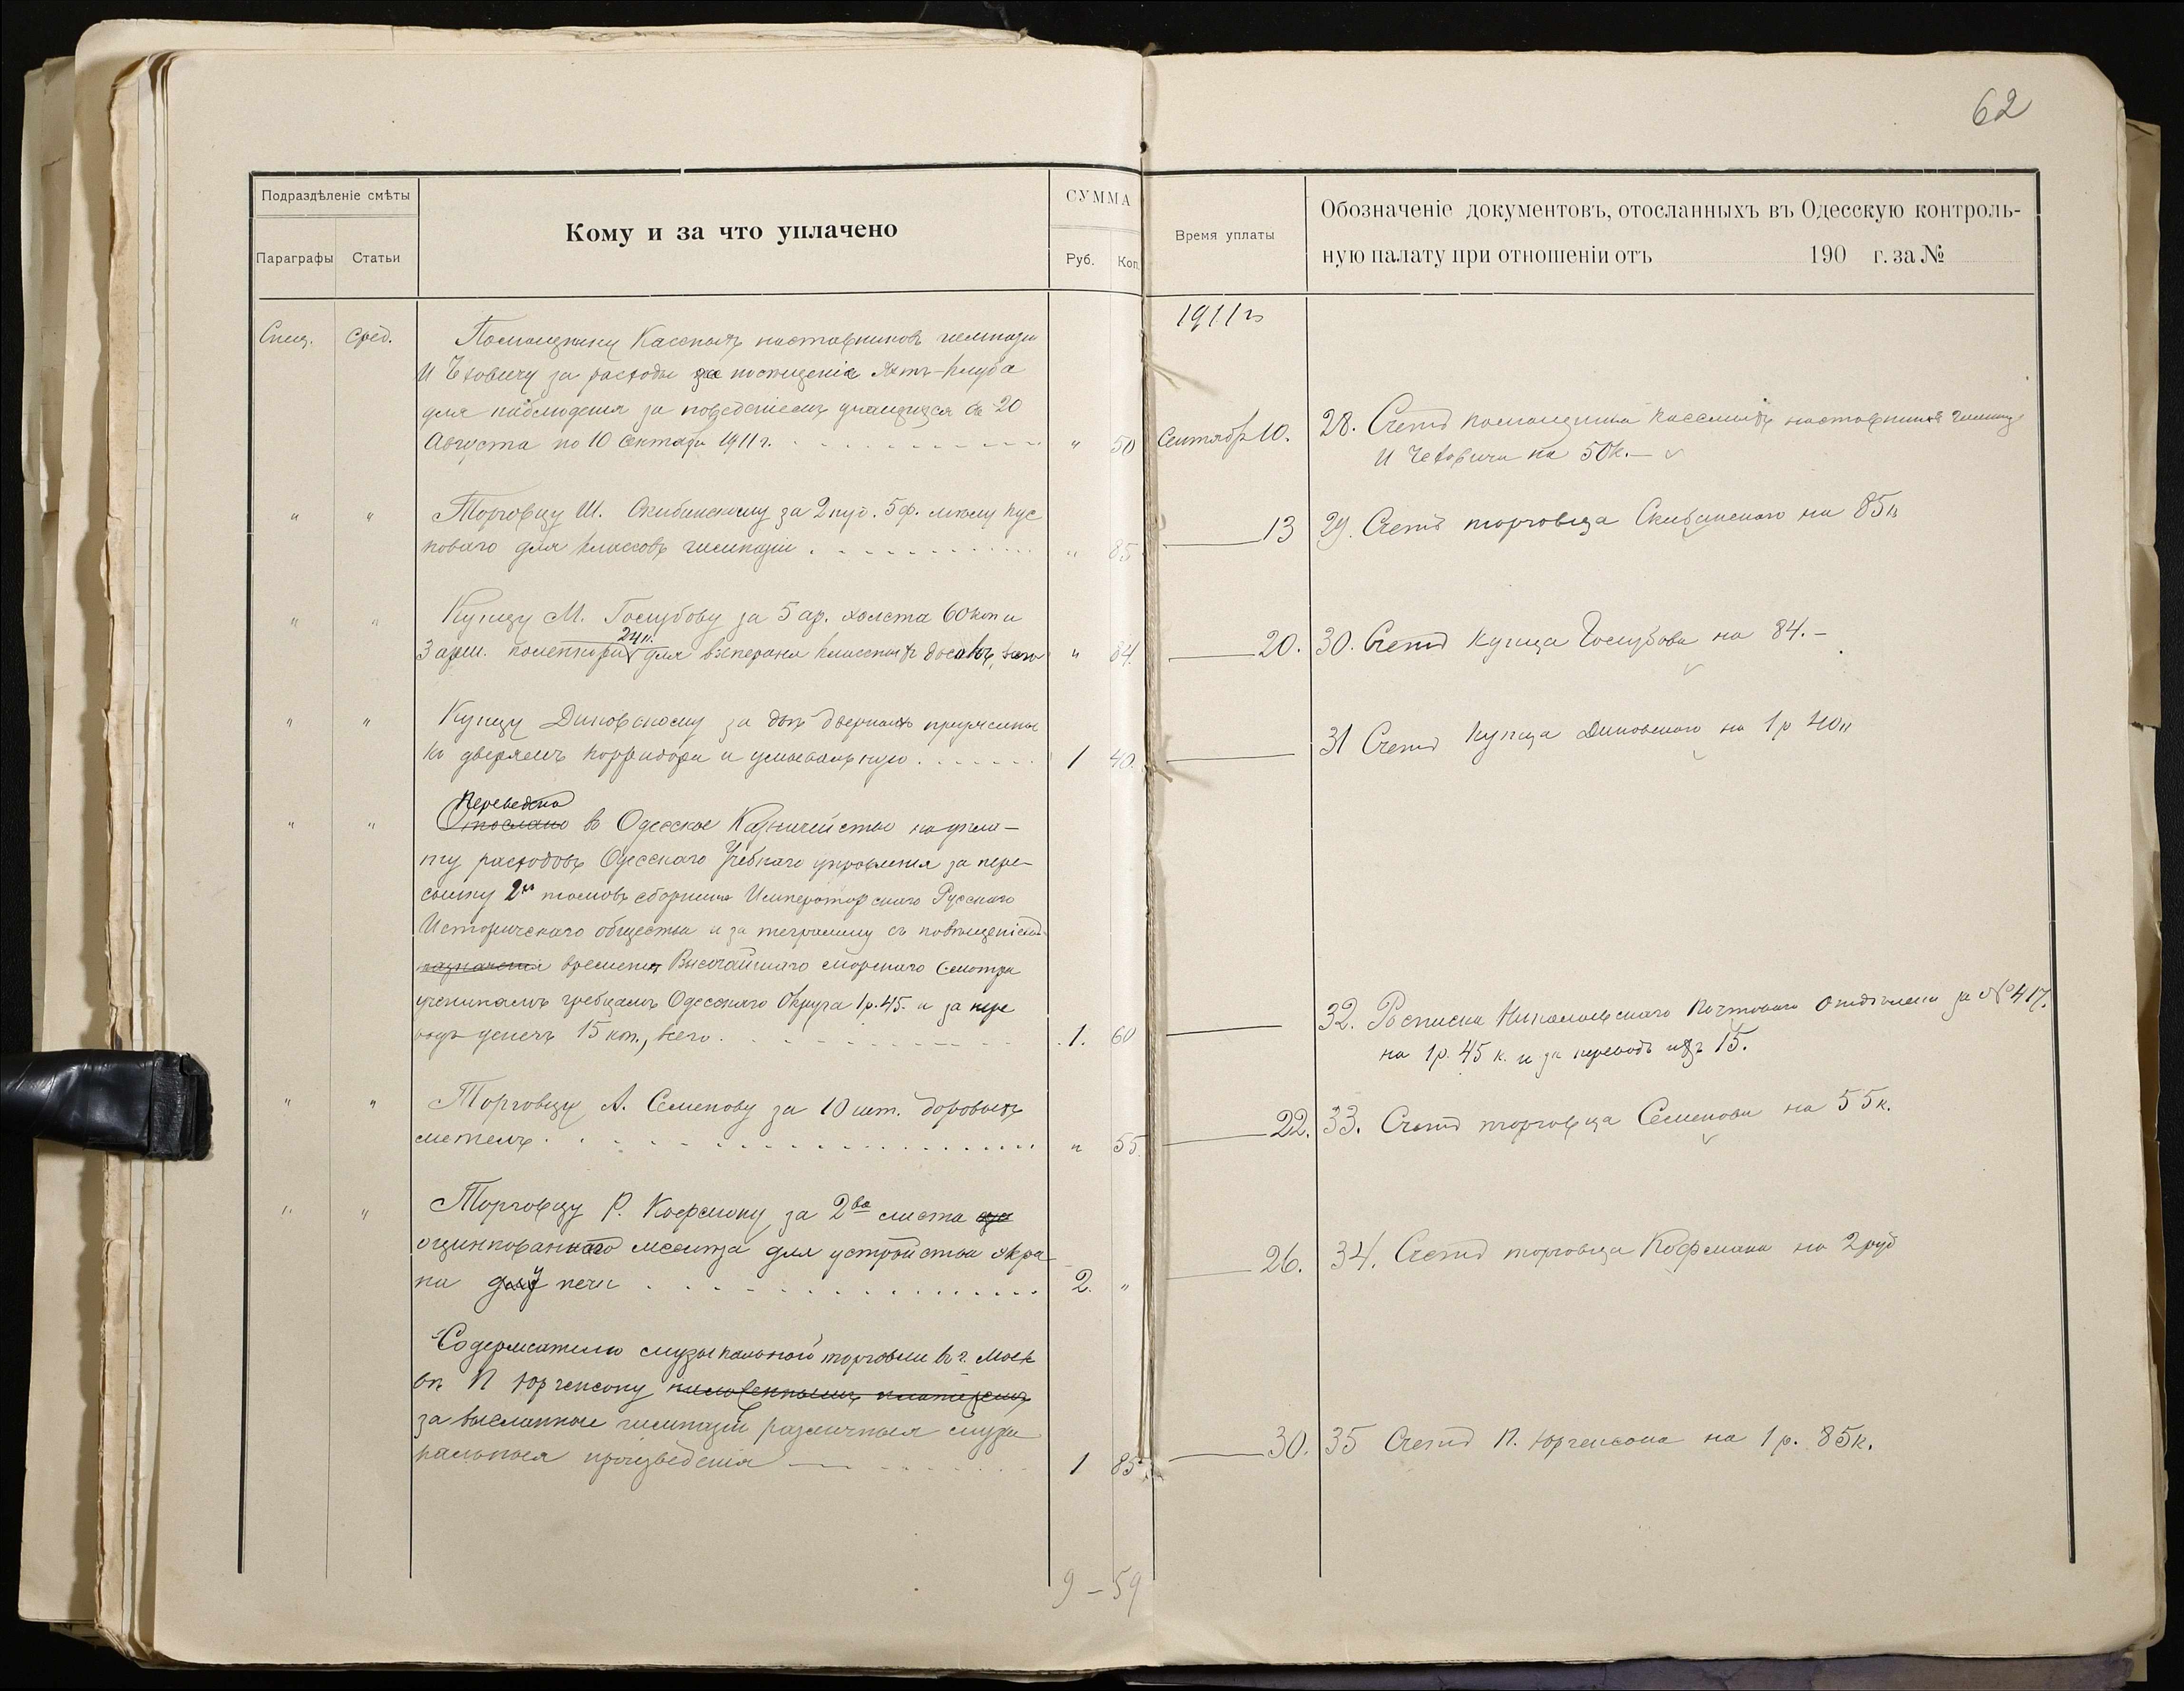 62
Подраздѣленіе смѣты
Параграфы Статьи
Кому и за что уплачено
СУММА
Руб. Коп.
Время уплаты
Обозначеніе документовъ, отосланныхъ въ Одесскую контроль-
ную палату при отношеніи отъ 190 г. за №
1911 г
Спец. Сред. Помощнику Классныхъ наставниковъ гимназіи
И Чеховичу за расходы за посѣщеніе Яхтъ-клуба
для наблюденія за поведеніемъ учащихся съ 20
Августа по 10 Сентября 1911 г. " 50
Сентября 10. 28. Счетъ помощника классныхъ наставниковъ гимназіи
И Чеховича на 50 к. –
" " Торговцу Ш. Скибинскому за 2 пуд. 5 ф. мѣлу кус
коваго для классовъ гимназіи " 85
13 29. Счетъ торговца Скибинскаго на 85 к
" " Купцу М. Голубову за 5 ар. холста 60 коп и
24 к.
3 арш. коленкора для вытиранія классныхъ досокъ, всего " 84.
20. 30. Счетъ Купца Голубова на 84. –
" " Купцу Диковскому за двѣ дверныхъ пружины
къ дверямъ корридора и умывальную 1 40.
31 Счетъ Купца Диковскаго на 1 р 40 к
Переведено
" " Отослано въ Одесское Казначейство на упла-
ту расходовъ Одесскаго Учебнаго управленія за пере-
сылку 2хъ томовъ сборника Императорскаго Русскаго
Историческаго общества и за телграмму съ
назначенія времени Высочайшаго морского Смотра
ученикамъ гребцамъ Одесскаго Округа 1 р. 45. и за пере
водъ денегъ 15 коп., всего. 1. 60
32. Росписка Николаевскаго Почтоваго Отдѣленія за № 417.
на 1 р. 45 к. и за переводъ ихъ 15.
" " Торговцу А. Семенову за 10 шт. дворовыхъ
метелъ " 55.
22. 33. Счетъ торговца Семенова на 55 к.
" " Торговцу Р. Кофману за 2ва листа
оцинкованнаго желѣза для устройства экра-
на у печи 2. "
26. 34. Счетъ торговца Кофмана на 2 руб
Содержателю музыкальной торговли въ г. Моск
вѣ П Юргенсону наложеннымъ платежемъ
за высланныя гимназіи различныя музы
кальныя произведенія 1 85
30. 35 Счетъ П. Юргенсона на 1 р. 85 к.
9 – 59